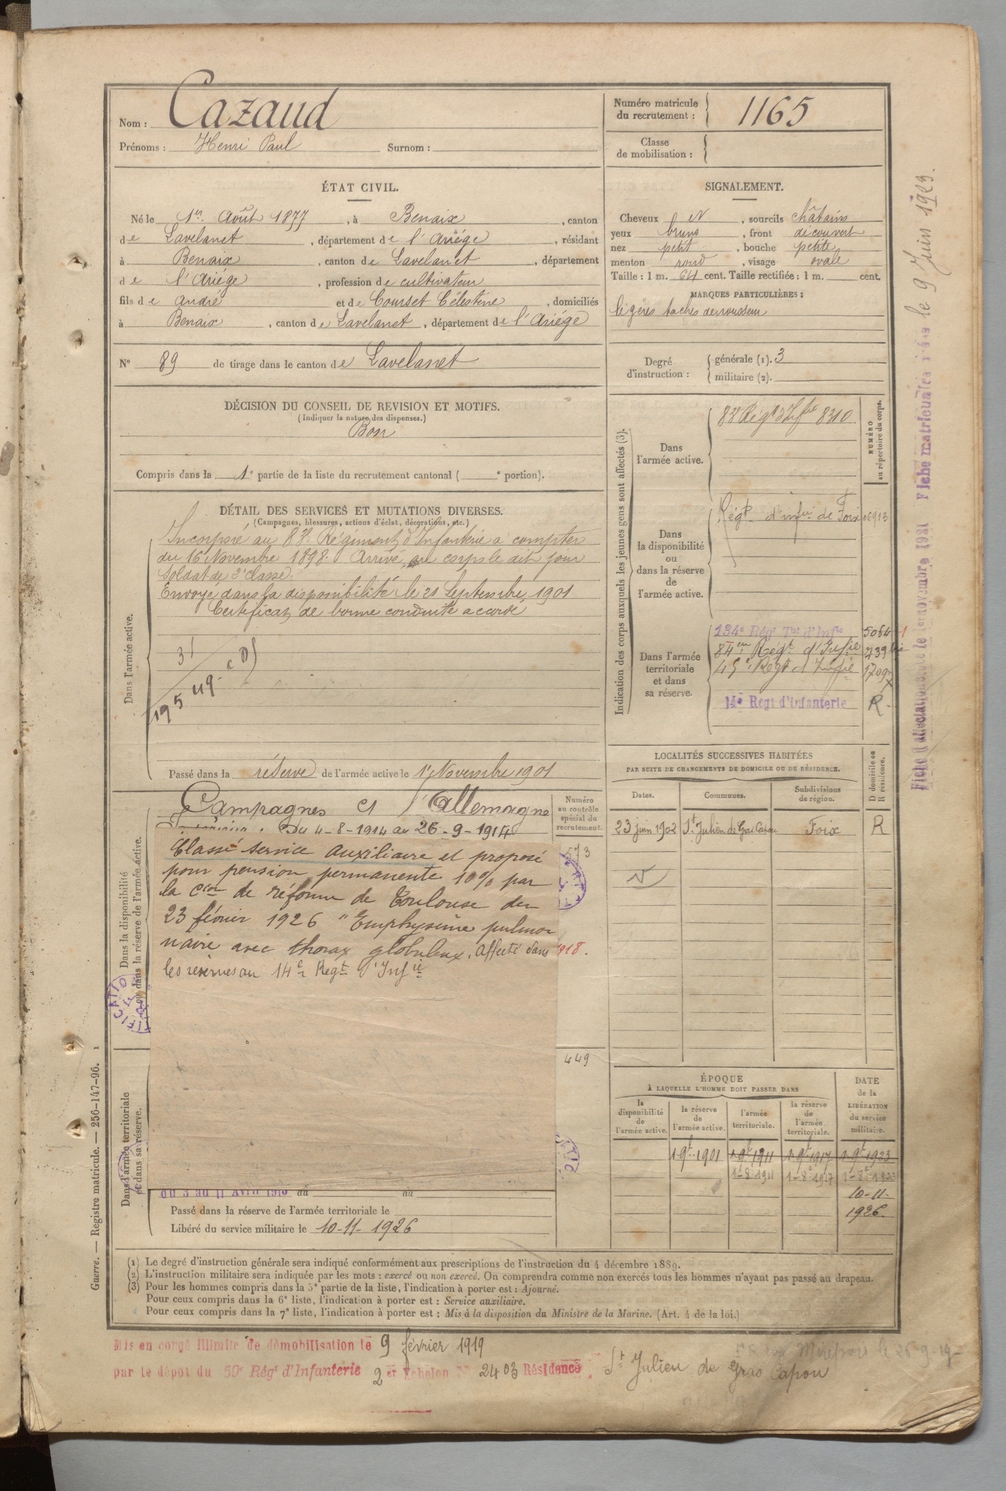 Nom : Cazaud
Prénoms : Henri Paul Surnom :
Numéro matricule du recrutement : 1165
Classe de mobilisation :
ÉTAT CIVIL.
Né le 1er Août 1877, à Benaix, canton
de Lavelanet, département de l'Ariége, résidant
à Benaix, canton de Lavelanet, département
de l'Ariége, profession de cultivateur
fils de André et de Courset Célestine, domiciliés
à Benaix, canton de Lavelanet, département de l'Ariége
N° 89 de tirage dans le canton de Lavelanet
SIGNALEMENT.
Cheveux N, sourcils châtains
yeux bruns, front découvert
nez petit, bouche petite
menton rond, visage ovale
Taille : 1 m. 64 cent. Taille rectifiée : 1 m. cent.
MARQUES PARTICULIÈRES :
légères taches de rousseur
Degré d'instruction : générale (1). 3
militaire (2).
DÉCISION DU CONSEIL DE REVISION ET MOTIFS.
(Indiquer la nature des dispenses.)
Bon
Compris dans la 1e partie de la liste du recrutement cantonal ( e portion).
DÉTAIL DES SERVICES ET MUTATIONS DIVERSES.
(Campagnes, blessures, actions d'éclat, décorations, etc.)
Dans l'armée active.
Incorporé au 83e Régiment d'Infanterie à compter
du 16 Novembre 1898. Arrivé au corps le dit jour
Soldat de 2e classe.
Envoyé dans la disponibilité le 21 Septembre 1901
Certificat de bonne conduite accordé
31
195 49
Passé dans la réserve de l'armée active le 1er Novembre 1901
Indication des corps auxquels les jeunes gens sont affectés (3).
Dans l'armée active.
83e Régt d'Infie 8310
NUMÉRO au répertoire du corps.
Dans la disponibilité ou dans la réserve de l'armée active.
Régt d'infie de Foix 06913
Dans l'armée territoriale et dans sa réserve.
134e Régt Tal d'Infie 5084
84me Regt d'Infie 739
14e Régt d'Infanterie R
Dans la disponibilité ou dans la réserve de l'armée active.
Campagnes Ct l'Allemagne
Du 4-8-1914 au 26-9-1914
Numéro au contrôle spécial du recrutement.
573
Classé service auxiliaire et proposé
pour pension permanente 10% par
la Con de réforme de Toulouse du
23 février 1926 "Emphysème pulmo-
naire avec thorax globuleux. Affecté dans
les réserves au 14e Regt d'Infie
918.
449
Dans l'armée territoriale et dans sa réserve.
du 3 au 11 Avril 1910 du au
Passé dans la réserve de l'armée territoriale le
Libéré du service militaire le 10-11-1926
LOCALITÉS SUCCESSIVES HABITÉES
PAR SUITE DE CHANGEMENTS DE DOMICILE OU DE RÉSIDENCE.
Dates. Communes. Subdivisions de région. D domicile ou R résidence.
23 juin 1902 St Julien de Gras Capou Foix R
ÉPOQUE
À LAQUELLE L'HOMME DOIT PASSER DANS
la disponibilité de l'armée active. la réserve de l'armée active. l'armée territoriale. la réserve de l'armée territoriale. DATE de la LIBÉRATION du service militaire.
1-9bre-1901 1-9bre-1911 1-9bre-1917 1-9bre-1923
1-8-1911 1-8-1917 1-8-1923
10-11-
1926.
(1) Le degré d'instruction générale sera indiqué conformément aux prescriptions de l'instruction du 4 décembre 1889.
(2) L'instruction militaire sera indiquée par les mots : exercé ou non exercé. On comprendra comme non exercés tous les hommes n'ayant pas passé au drapeau.
(3) Pour les hommes compris dans la 5e partie de la liste, l'indication à porter est : Ajourné.
Pour ceux compris dans la 6e liste, l'indication à porter est : Service auxiliaire.
Pour ceux compris dans la 7e liste, l'indication à porter est : Mis à la disposition du Ministre de la Marine. (Art. 4 de la loi.)
Guerre. — Registre matricule. — 256-147-96.
Mis en congé illimité de démobilisation le 9 février 1919
par le dépôt du 59e Régt d'Infanterie 2 er Echelon N° 2403 Résidence St Julien de Gras Capou
le 9 Juin 1923.